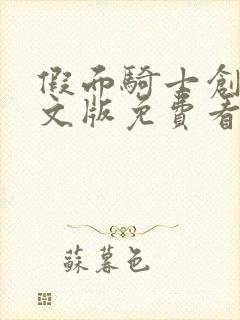 假面騎士創
文版免費看
蘇暮色